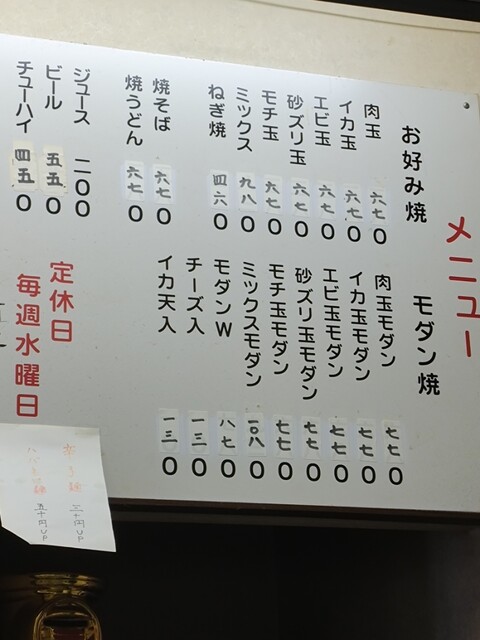 メニュー
お好み焼
肉玉 六七0
イカ玉 六七0
エビ玉 六七0
砂ズリ玉 六七0
モチ玉 六七0
ミックス 九八0
ねぎ焼 四六0
焼そば 六七0
焼うどん 六七0
ジュース 二00
ビール 五五0
チューハイ 四五0
モダン焼
肉玉モダン 七七0
イカ玉モダン 七七0
エビ玉モダン 七七0
砂ズリ玉モダン 七七0
モチ玉モダン 七七0
ミックスモダン 一〇八0
モダンW 八七0
チーズ入 一三0
イカ天入 一三0
定休日
毎週水曜日
三十円UP
五十円UP